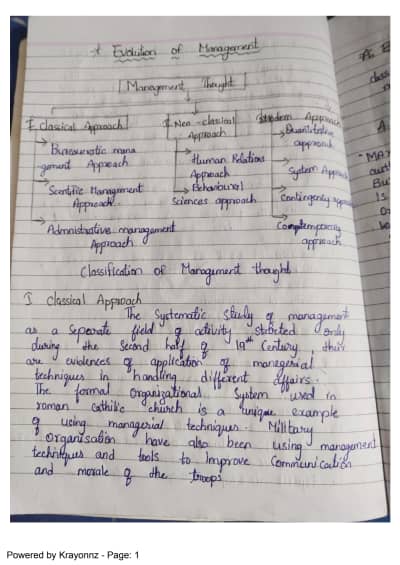 * Evolution of Management
Management Thought
I Classical Approach
→ Bureaucratic mana
-gement Approach
→ Scentific Management
Approach.
→ Administrative management
Approach
II Neo-classical
Approach
→ Human Relations
Approach
→ Behavioural
Sciences approach
III Modern Approach
→ Quantitative
approach
→ System Approach
→ Contingenty approach
→ Comptemporary
approach
Classification of Management thought
I Classical Approach
The systematic study of management
as a seperate field of activity started only
during the second half of 19th Century, their
are evidences of application of managerial
techniques in handling different affairs.
The formal organizational system used in
roman cathilic church is a unique example
of using managerial techniques. Military
organisation have also been using management
techniques and tools to improve Communication
and morale of the troops
A.
class
A.
"MA
aut
Bu
is
Powered by Krayonnz - Page: 1